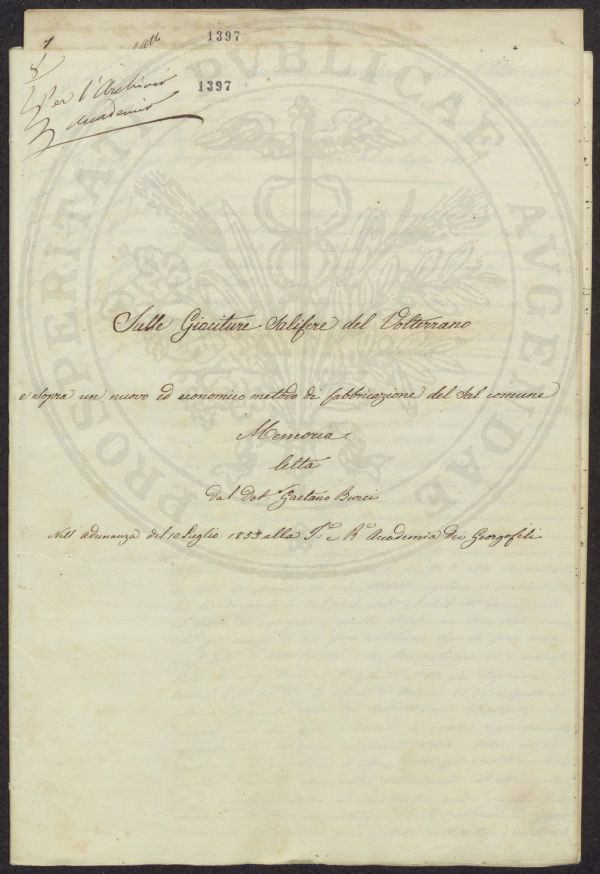 1397
1397
Per l'Archivio
Accademico
Sulle Giaciture Salifere del Volterrano
e sopra un nuovo ed economico metodo di fabbricazione del Sal comune
Memoria
letta
Dal Dot. Gaetano Burci
Nell'adunanza del 10 Luglio 1853 alla I.e R. Accademia dei Georgofili
PROSPERITATI PVBLICAE AVGENDAE